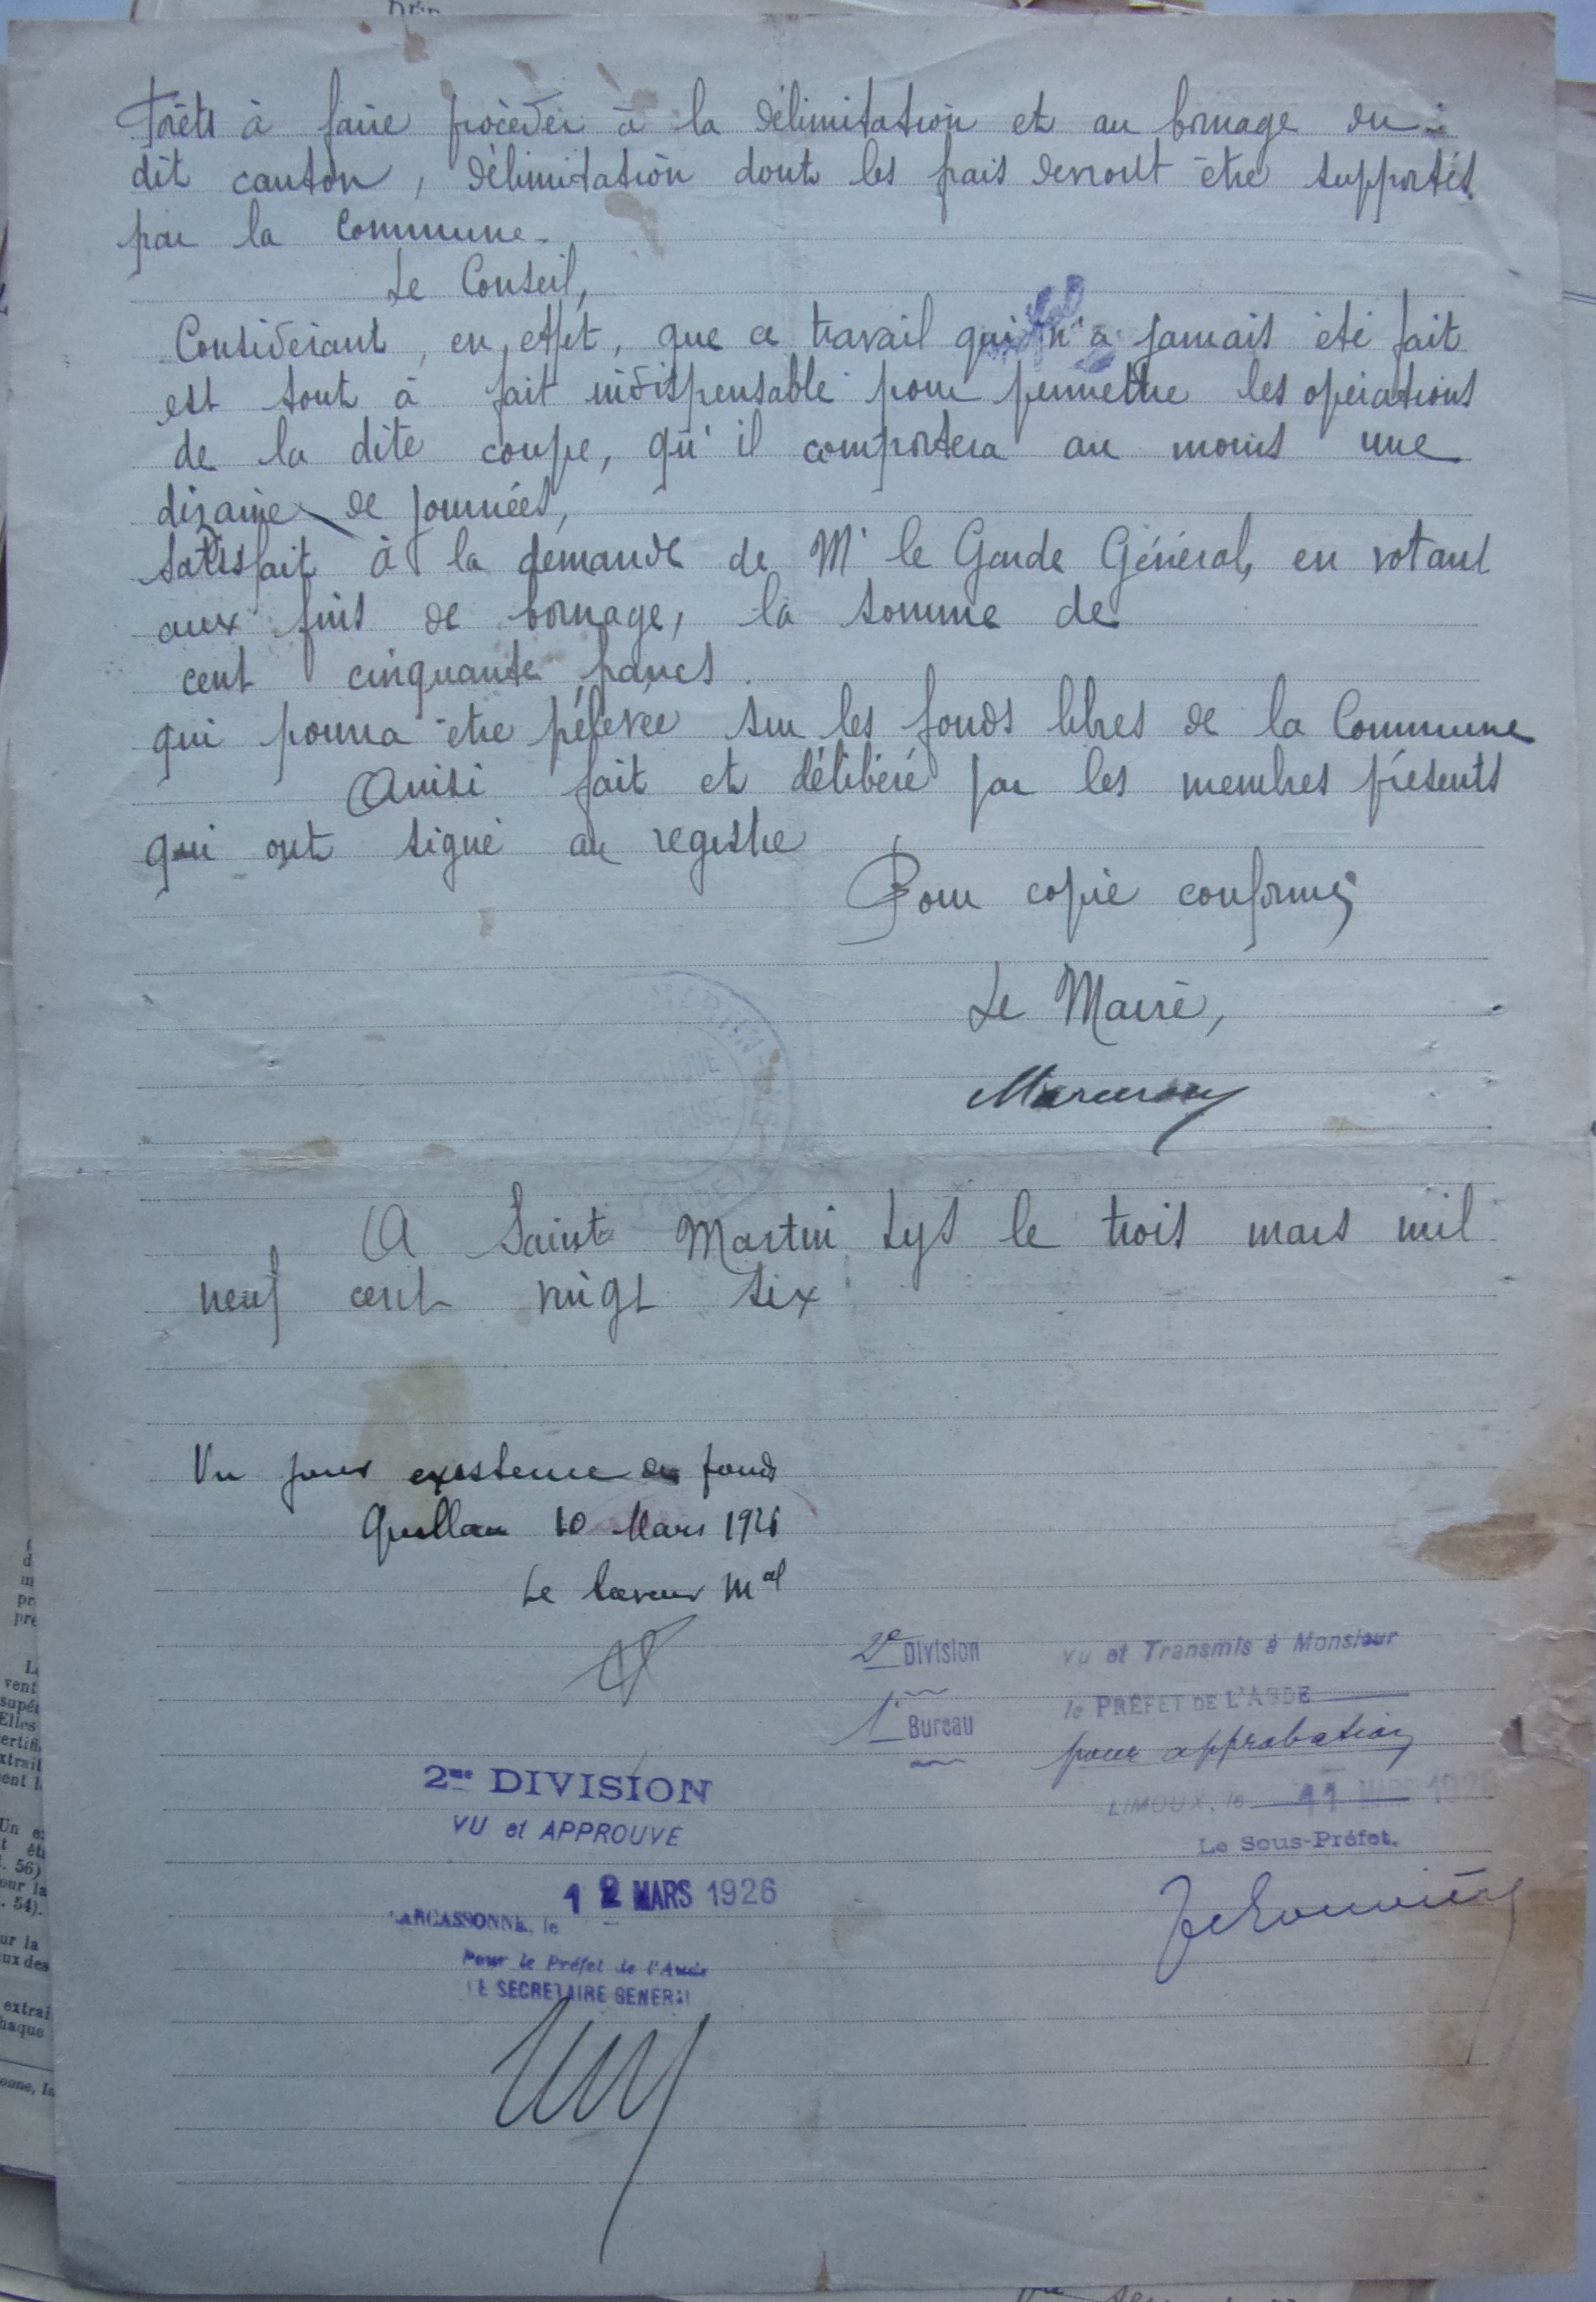 Forêts à faire procéder à la délimitation et au bornage du-
dit canton, délimitation dont les frais devront être supportés
par la Commune.
Le Conseil,
Considérant, en effet, que ce travail qui n'a jamais été fait
est tout à fait indispensable pour permettre les opérations
de la dite coupe, qu'il comportera au moins une
dizaine de journées,
satisfait à la demande de Mr le Garde Général, en votant
aux fins de bornage, la somme de
cent cinquante francs.
qui pourra être prélevée sur les fonds libres de la Commune
Ainsi fait et délibéré par les membres présents
qui ont signé au registre
Pour copie conforme,
Le Maire,
A Saint Martin Lys le trois mars mil
neuf cent vingt six
Vu pour existence de fonds
Quillan 10 Mars 1926
Le Receveur Mal
2e Division
1r Bureau
Vu et Transmis à Monsieur
le PRÉFET DE L'AUDE
pour approbation
LIMOUX, le 11 MARS 1926
Le Sous-Préfet.
2me DIVISION
VU et APPROUVÉ
12 MARS 1926
CARCASSONNE, le
Pour le Préfet de l'Aude
LE SECRETAIRE GENERAL